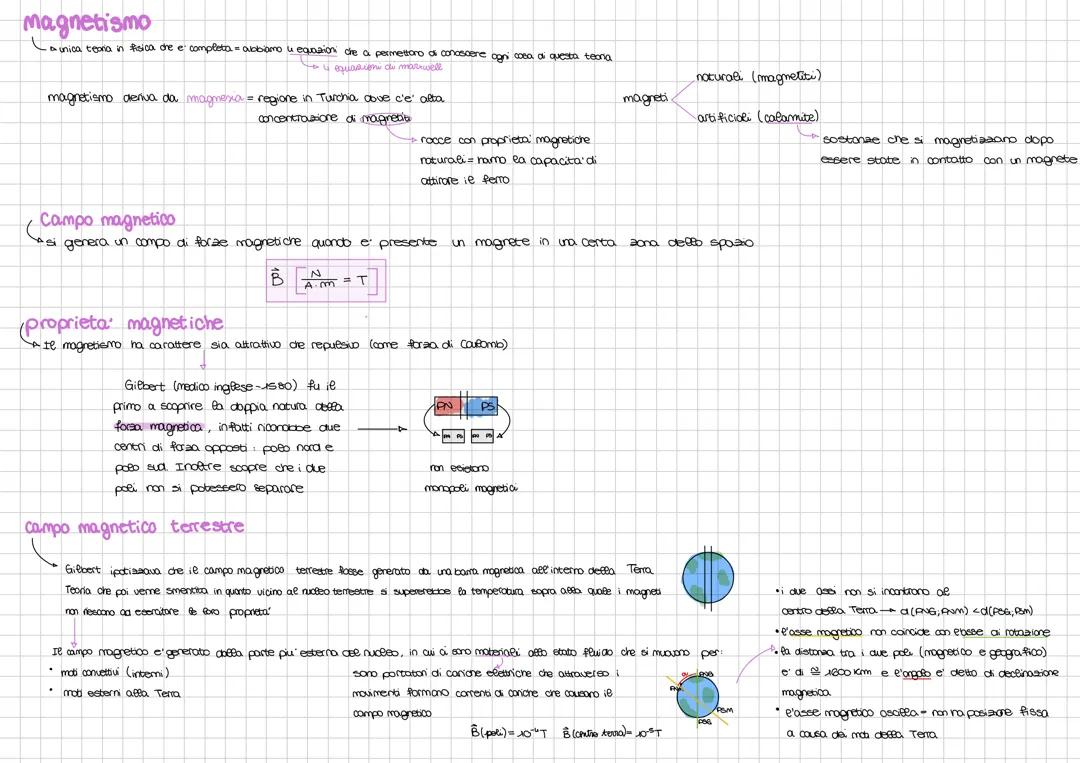 magnetismo
unica teoria in fisica che e' completa = abbiamo 4 equazioni che ci permettono di conoscere ogni cosa di questa teoria
4 equazioni di maxwell
magnetismo deriva da magnesia = regione in Turchia dove c'e' alta
concentrazione di magnetiti
rocce con proprieta' magnetiche
naturali = hanno la capacita' di
attirare il ferro
magneti
naturali (magnetiti)
artificiali (calamite)
sostanze che si magnetizzano dopo
essere state in contatto con un magnete
Campo magnetico
si genera un campo di forze magnetiche quando e' presente un magnete in una certa zona dello spazio
B⃗ [N/A·m = T]
proprieta' magnetiche
Il magnetismo ha carattere sia attrattivo che repulsivo (come forza di Coulomb)
Gilbert (medico inglese ~1580) fu il
primo a scoprire la doppia natura della
forza magnetica, infatti riconobbe due
centri di forza opposti: polo nord e
polo sud. Inoltre scopre che i due
poli non si potessero separare
PN PS
PN PS PN PS
non esistono
monopoli magnetici
campo magnetico terrestre
Gilbert ipotizzava che il campo magnetico terrestre fosse generato da una barra magnetica all'interno della Terra
Teoria che poi venne smentita in quanto vicino al nucleo terrestre si supererebbe la temperatura sopra alla quale i magneti
non riescono ad esercitare le loro proprieta'
Il campo magnetico e' generato dalla parte piu' esterna del nucleo, in cui ci sono materiali allo stato fluido che si muovono per:
• moti convettivi (interni)
• moti esterni alla Terra
sono portatori di cariche elettriche che attraverso i
movimenti formano correnti di cariche che causano il
campo magnetico
B⃗(poli) = 10⁻⁴T B⃗(centro terra) = 10⁻⁵T
α PNG
PNM
PSM
PSG
• i due assi non si incontrano al
centro della Terra → d(PNG,PNM) < d(PSG,PSM)
• l'asse magnetico non coincide con l'asse di rotazione
• la distanza tra i due poli (magnetico e geografico)
e' di ≅ 1800 Km e l'angolo e' detto di declinazione
magnetica
• l'asse magnetico oscilla = non ha posizione fissa
a causa dei moti della Terra